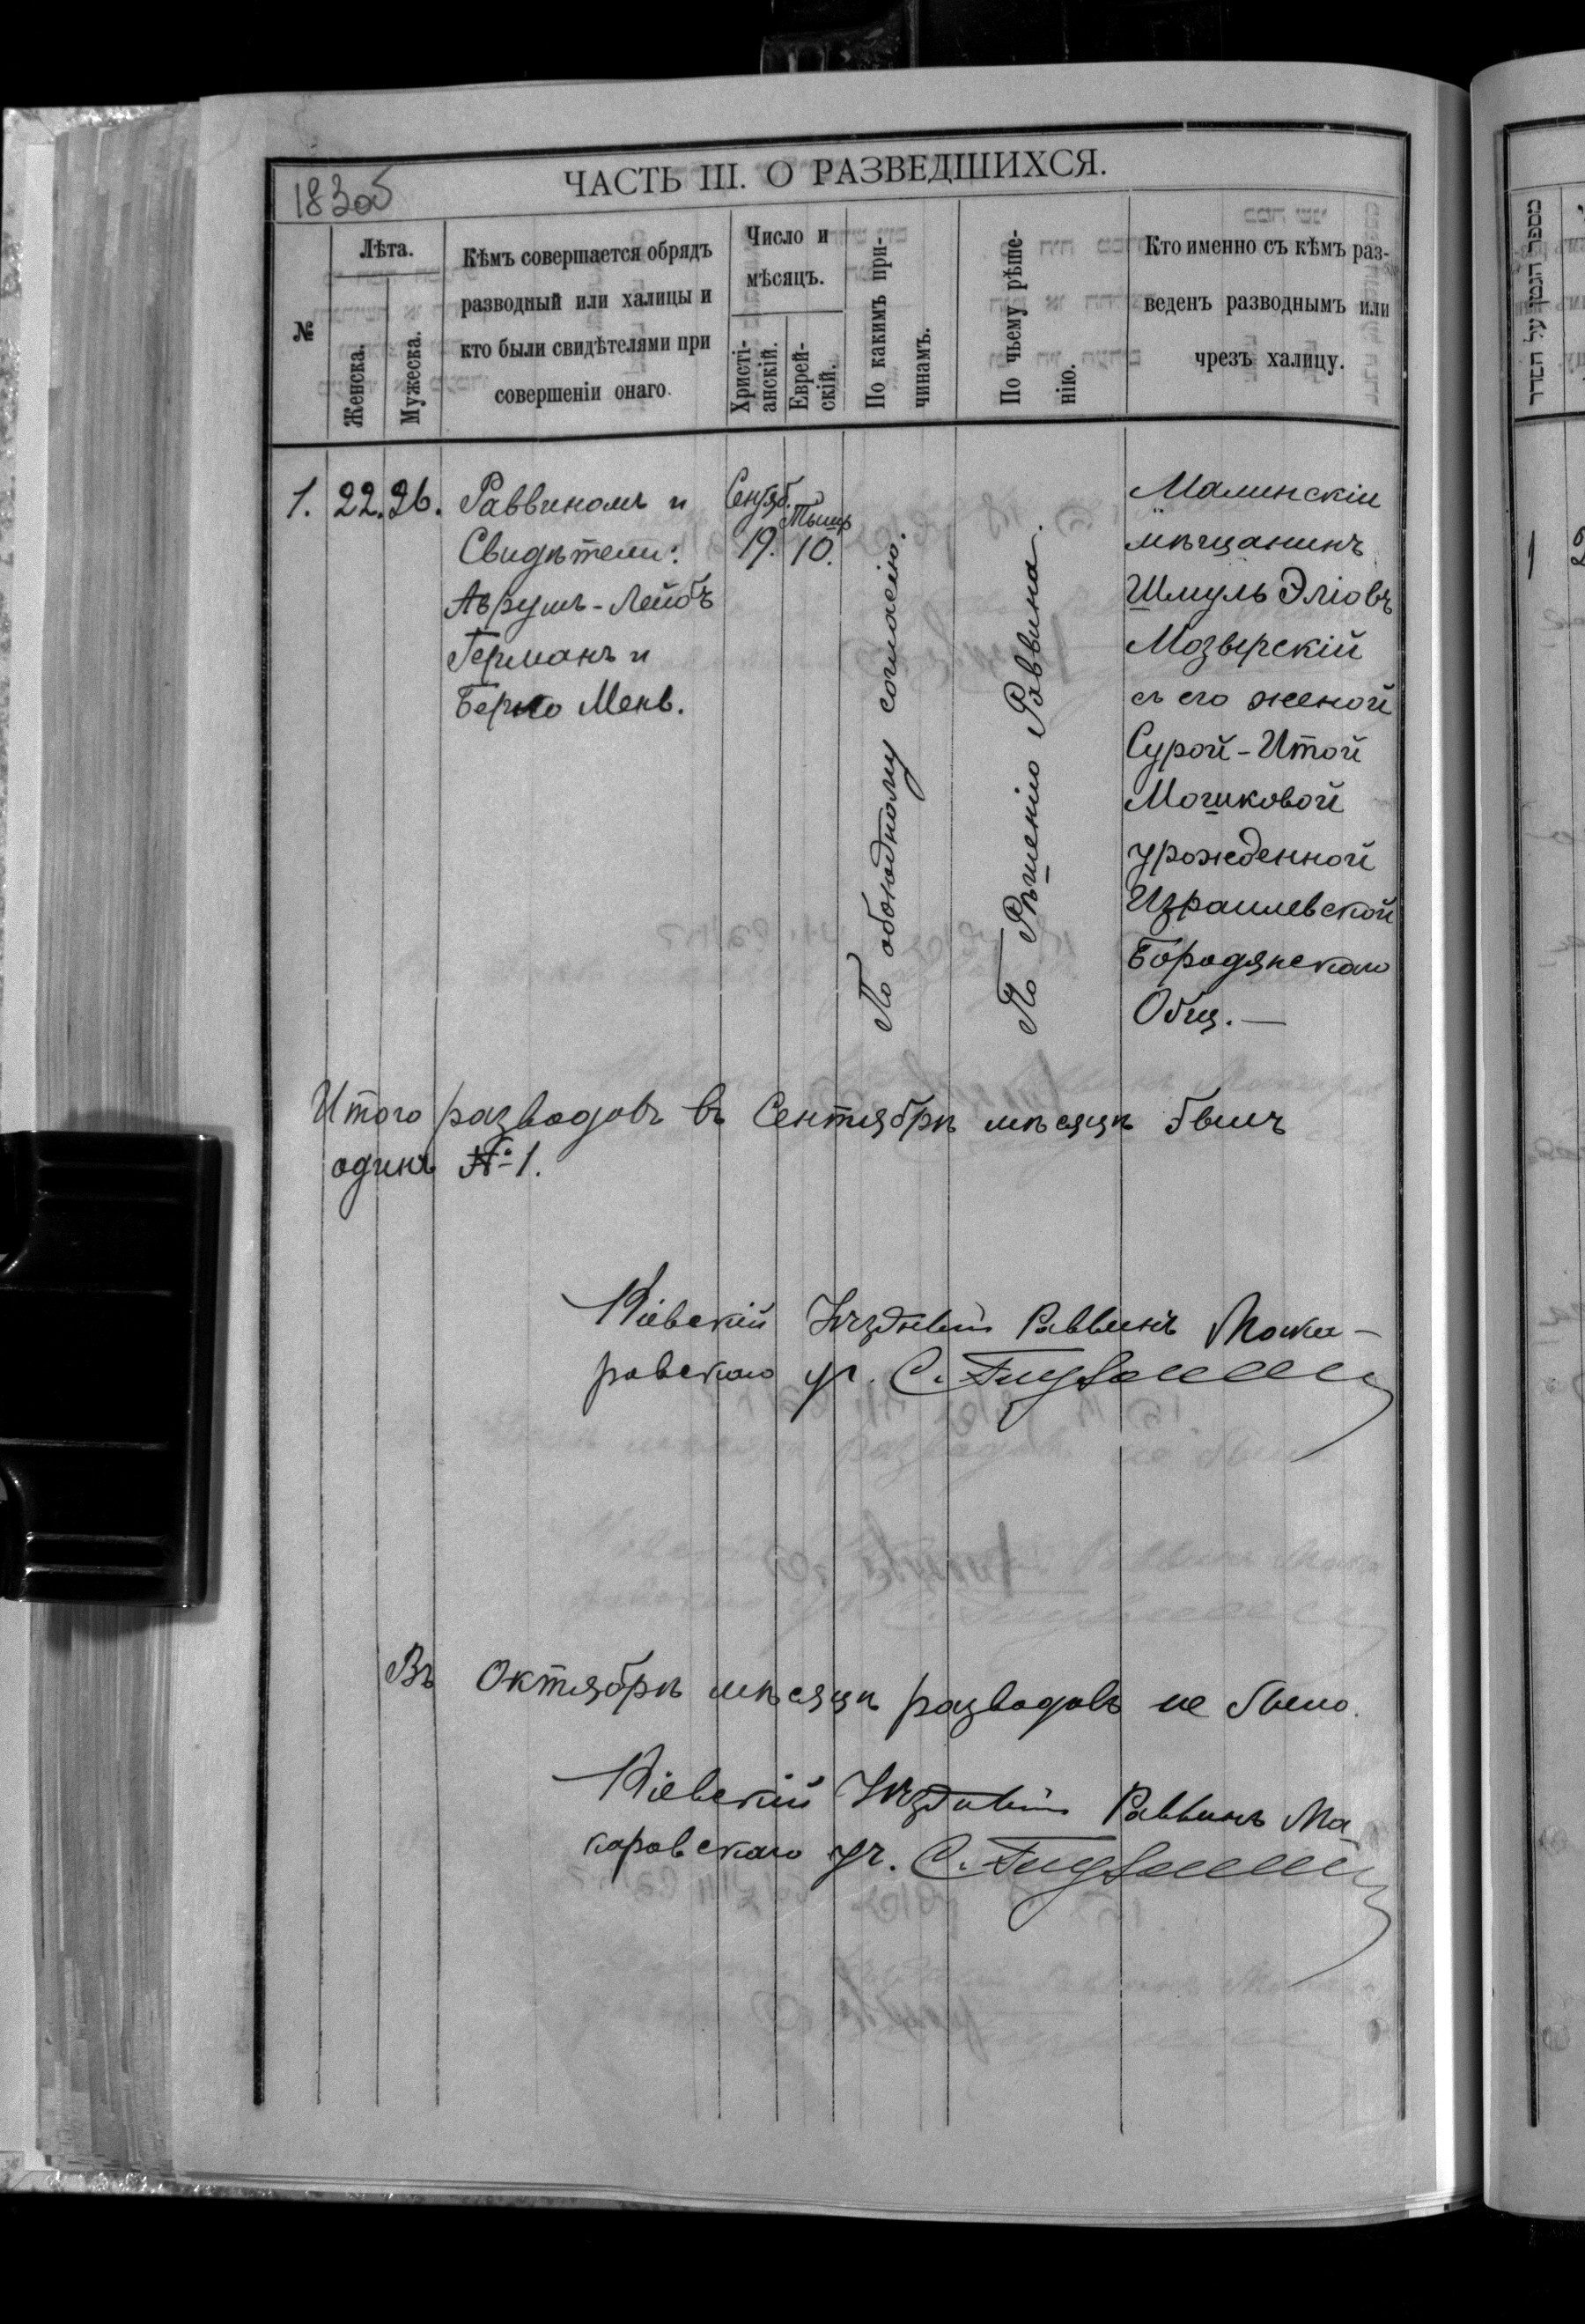 18305
ЧАСТЬ III. О РАЗВЕДШИХСЯ.
№
Лѣта.
Женска.
Мужеска.
Кѣмъ совершается обрядъ
разводный или халицы и
кто были свидѣтелями при
совершеніи онаго.
Число и
мѣсяцъ.
Христі-
анскій.
Еврей-
скій.
По какимъ при-
чинамъ.
По чьему рѣше-
нію.
Кто именно съ кѣмъ раз-
веденъ разводнымъ или
чрезъ халицу.
1. 22. 26.
Раввиномъ и
Свидѣтели:
Аврумъ-Лейбъ
Германъ и
Берко Менв.
Сентяб.
19.
Тышр
10.
По обоюдному согласію.
По Рѣшенію Раввина.
Малинскій
мѣщанинъ
Шмуль Эліовъ
Мозырскій
съ его женой
Сурой-Итой
Мошковой
урожденной
Израилевской
Бородянскаго
Общ.—
Итого разводовъ въ Сентябрѣ мѣсяцѣ былъ
одинъ № 1.
Кіевскій Уѣздный Раввинъ Мака-
ровскаго уч. С.
Въ Октябрѣ мѣсяцѣ разводовъ не было.
Кіевскій Уѣздный Раввинъ Ма-
каровскаго уч. С.
מספר הנשין על הסדר
1